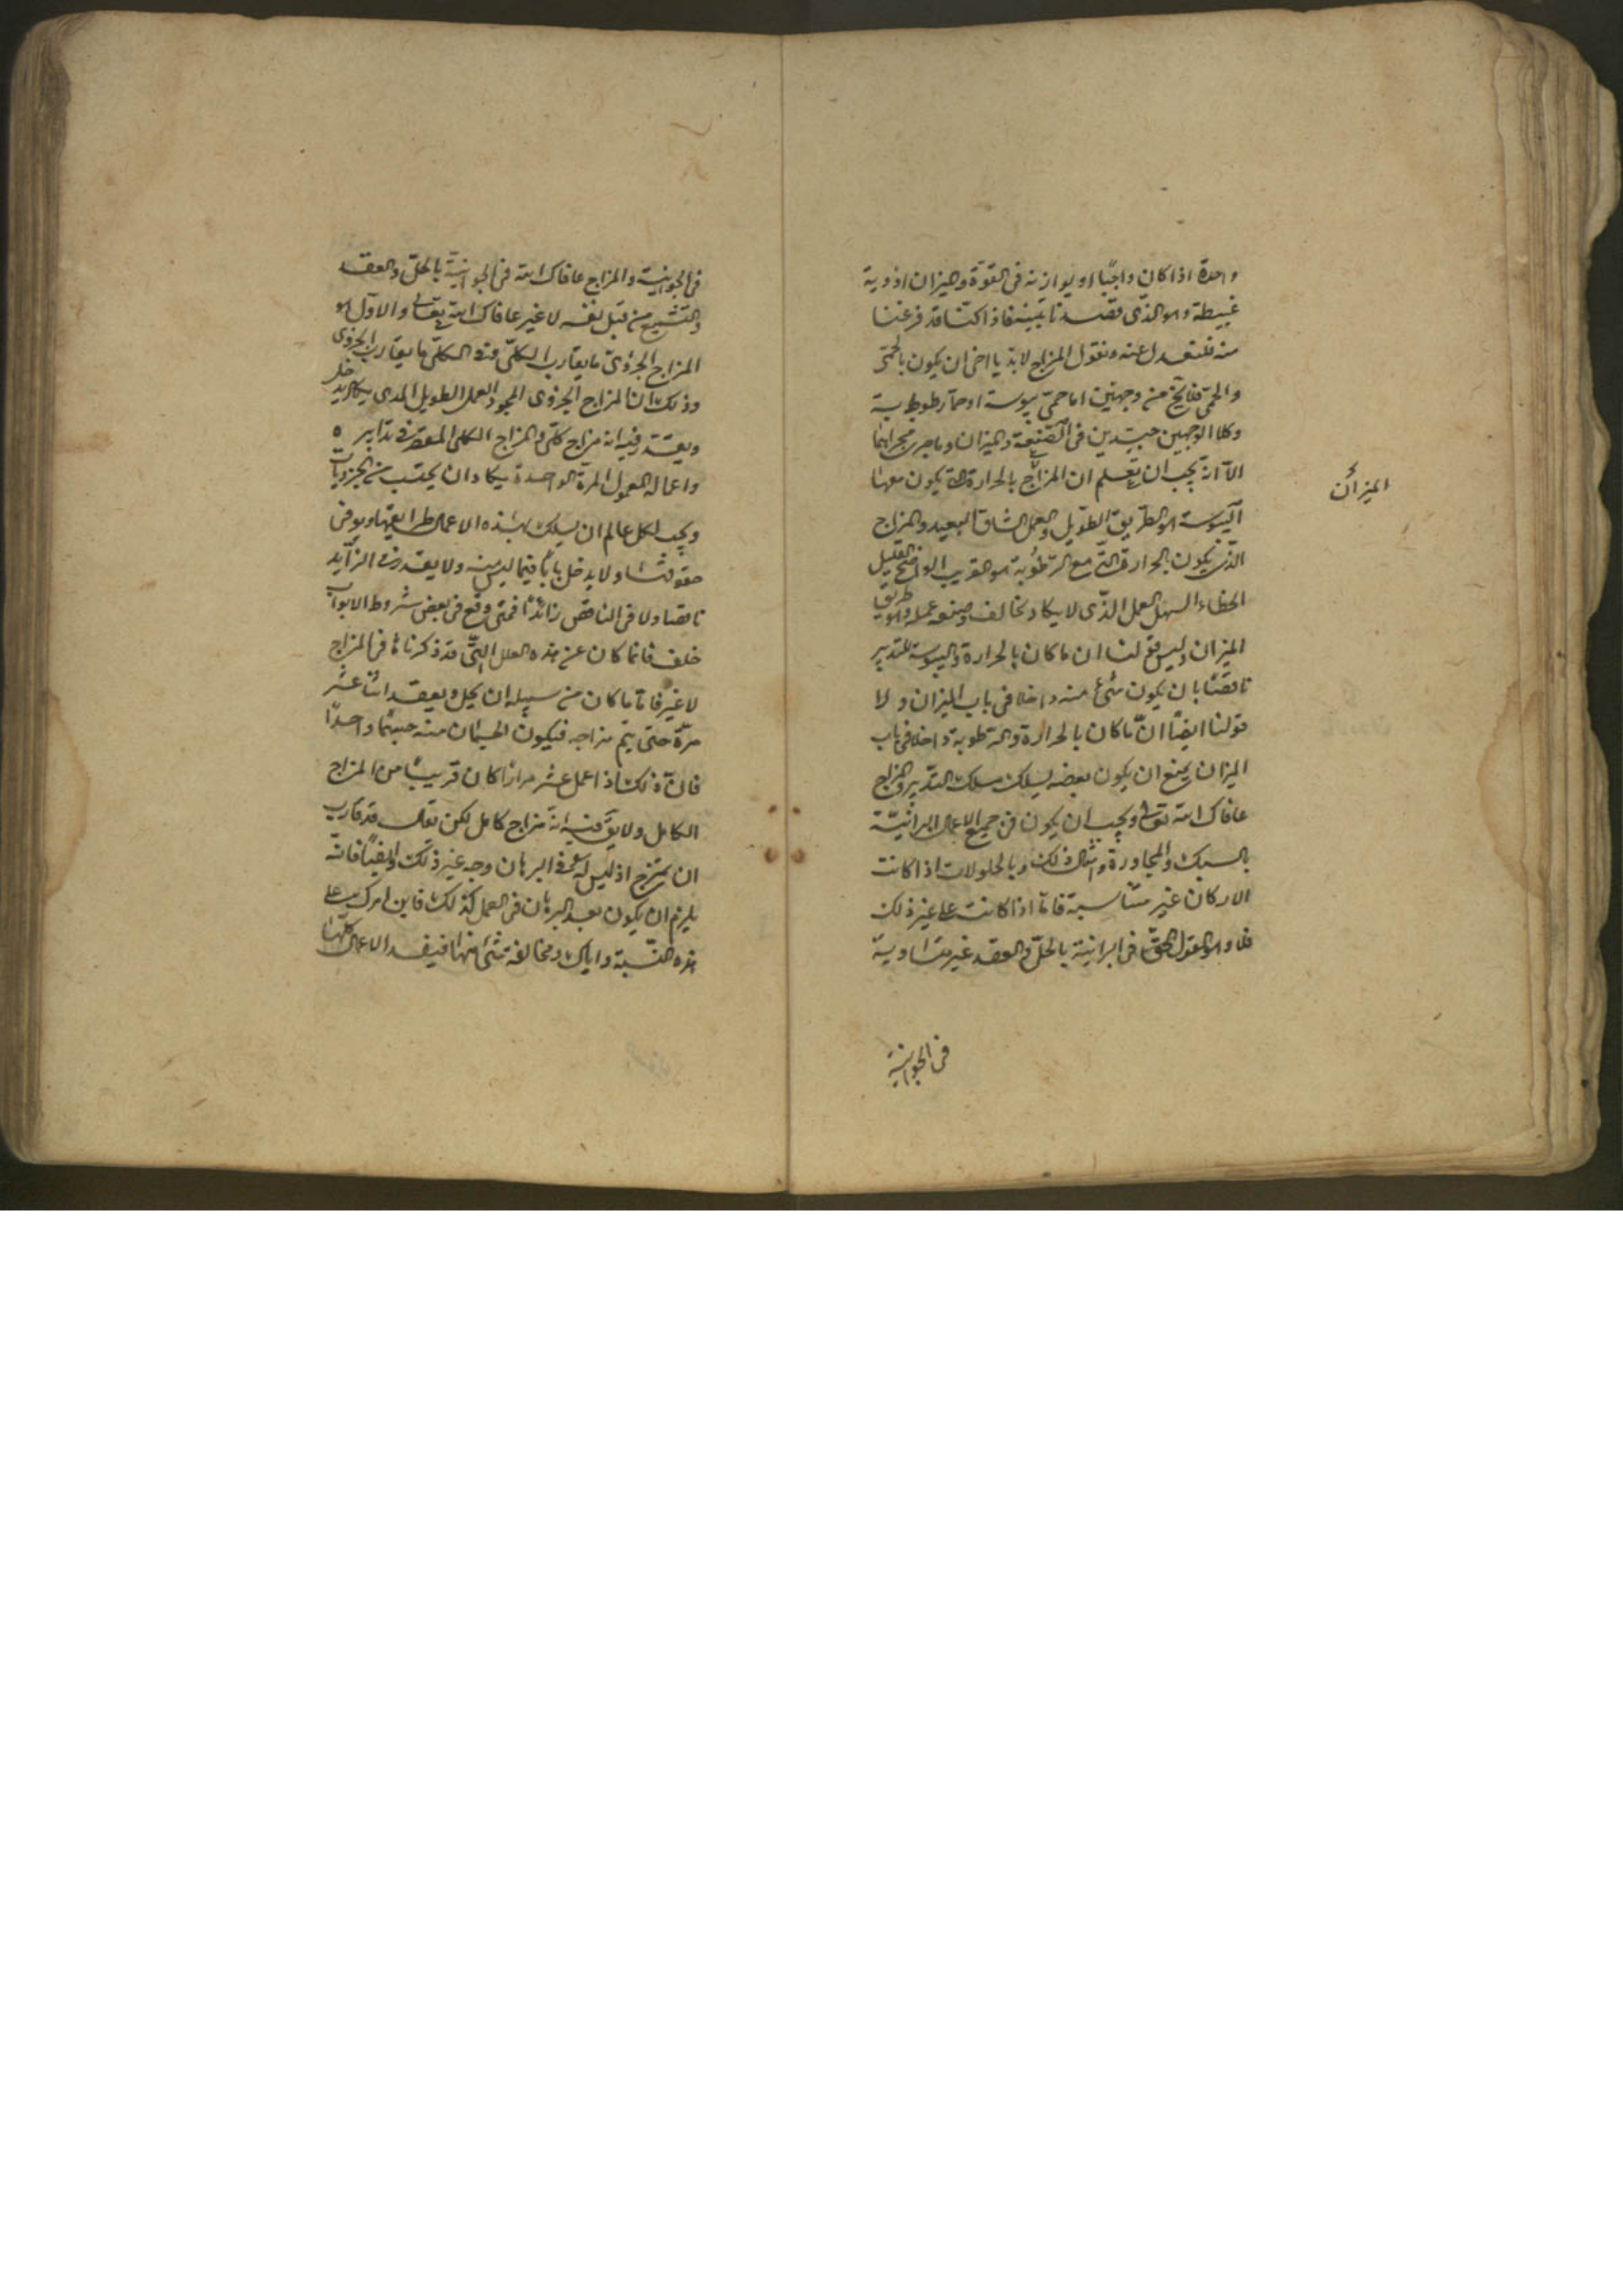 واحدة اذا كان واجبًا او يوازنه فى القوّة والميزان ادوية
غبيطة وهو الذّى قصدنا تبيينه فاذا كنّا قد فرغنا
منه فلنعدل عنه ونقول المزاج لابدّ يا اخى ان يكون بالحمّى
والحمّى من وجهين اما حمّى يبوسة او حمّا رطوبية
وكلا الوجهين جيّدين فى الصّنعة والميزان وما جرى مجراهما
الّا انّه يجب ان تعلم ان المزاج بالحرارة الّتى يكون معها
اليبوسة هو الطّريق الطّويل والعمل الشاق البعيد والمزاج
الّذى يكون بالحرارة الّتى مع الرّطوبة هو القريب الواضح القليل
الخطاء السهل العمل الذّى لا يكاد يخالف وصنعه عمله وهو طريق
الميزان وليس قولنا ان ما كان بالحرارة واليبوسة للتدبير
ناقضًا بان يكون شئ منه داخلا فى باب الميزان ولا
قولنا ايضًا انّ ما كان بالحرارة والرطوبة داخلا فى باب
الميزان يمنع ان يكون بعضه يسلك مسلك التدبير والمزاج
عافاك الله تعالى ويجب ان يكون فى جميع الاعمال البرانيّة
بالسبك والمجاورة وامثال ذلك وبالحلولات اذا كانت
الاركان غير متناسبة فامّا اذا كانت على غير ذلك
فلا وهو القول الحقّ فى البرانية بالحلّ والعقد غير متساوية
الميزان
فى الجوانية
فى الجوانية والمزاج عافاك الله فى الجوانيّة بالحلّ والعقد
والتشميع من قبل نفسه لا غير عافاك الله تعالى والاوّل هو
المزاج الجزؤى ما يقارب الكلّى وفى الكلّى ما يقارب الجزوى
وذلك انّ المزاج الجزوى المجود العمل الطويل المدى يكاد يدخل
ويعتقد فيه انه مزاج كلّى والمزاج الكلى المقصر فى تدابيره
واعماله المعمول المرّة الواحدة يكاد ان يحتسب من الجزويات
ويجب لكل عالم ان يسلك بهذه الاعمال طرايقها ويوفى
حقوقها ولا يدخل بابًا فيما ليس منه ولا يعتقد فى الزّايد
ناقصا ولا فى الناقص زائدًا فمتى وقع فى بعض شروط الابواب
خلف فانما كان عن هذه العلل الّتى قد ذكرناها فى المزاج
لا غير فامّا ما كان من سبيله ان يحل ويعقد اثنا عشر
مرّة حتى يتم مزاجه فيكون الجسمان منه جسمًا واحدًا
فانّ ذلك اذا عمل عشر مرارًا كان قريبًا من المزاج
الكامل ولا يقال فيه انّه مزاج كامل لكن يقال قد قارب
ان يمتزج اذ ليس له فى البرهان وجه غير ذلك وايضًا فانه
يلزم ان يكون بعد البرهان فى العمل كذلك فابن امرك على
هذه النّسبة واياك ومخالفة شئ منها فيفسد الاعمال كلّها